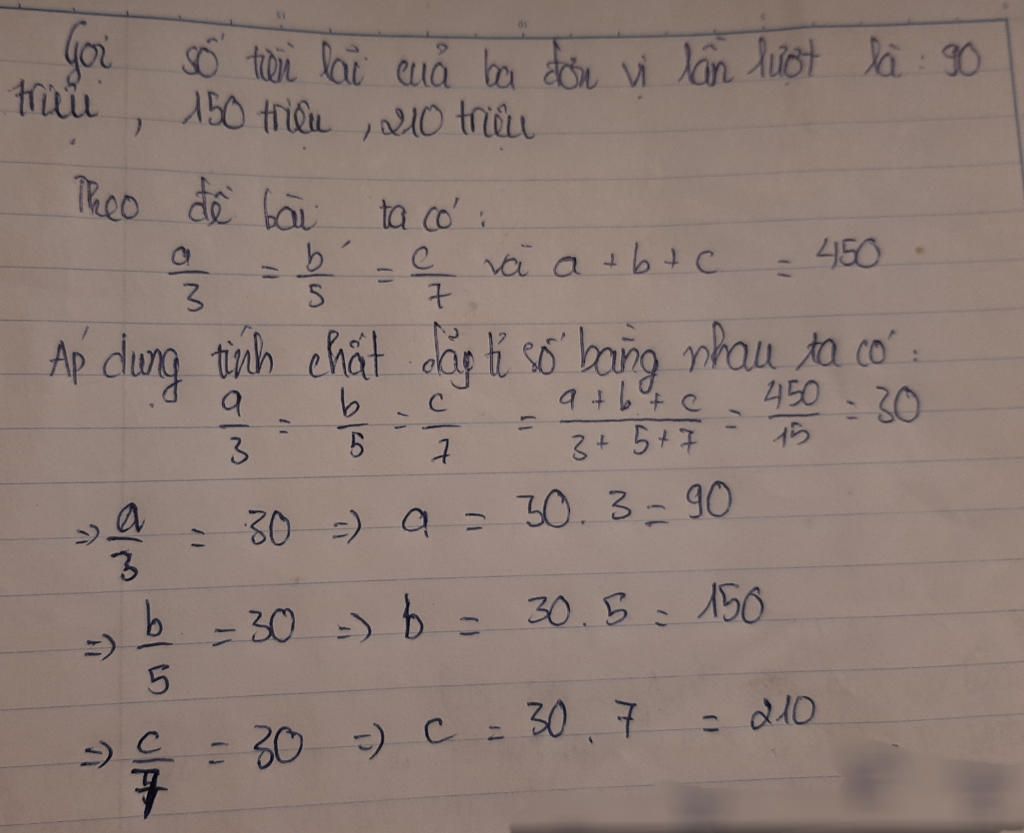 Gọi số tiền lãi của ba đơn vị lần lượt là : 90
triệu, 150 triệu, 210 triệu
Theo đề bài ta có :
a/3 = b/5 = c/7 và a + b + c = 450
Áp dụng tính chất dãy tỉ số bằng nhau ta có :
a/3 = b/5 = c/7 = (a + b + c)/(3 + 5 + 7) = 450/15 = 30
=> a/3 = 30 => a = 30 . 3 = 90
=> b/5 = 30 => b = 30 . 5 = 150
=> c/7 = 30 => c = 30 . 7 = 210